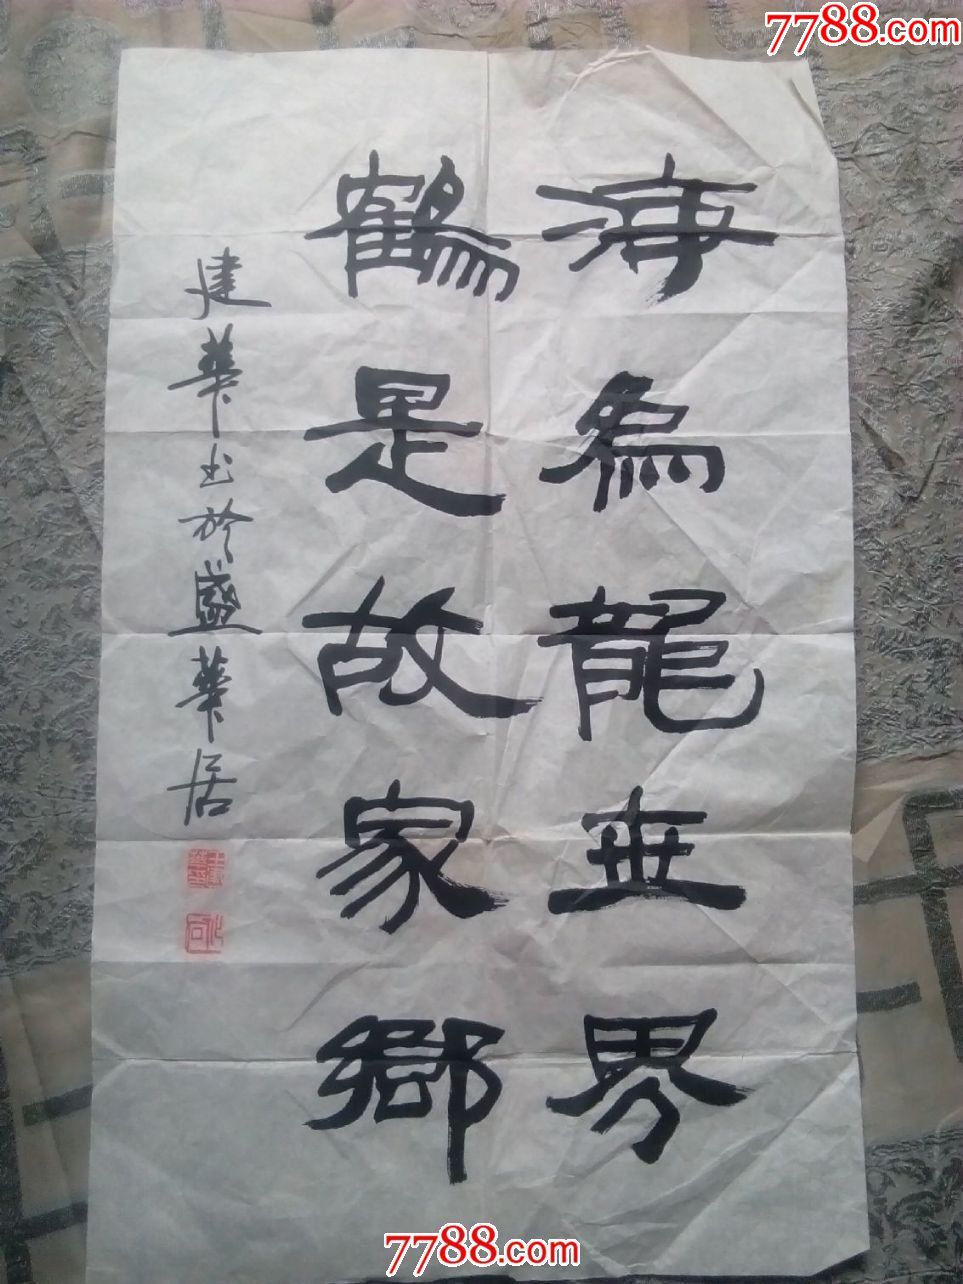 7788.com
海為龍世界
鶴是故家鄉
建華书於盛華居
7788.com